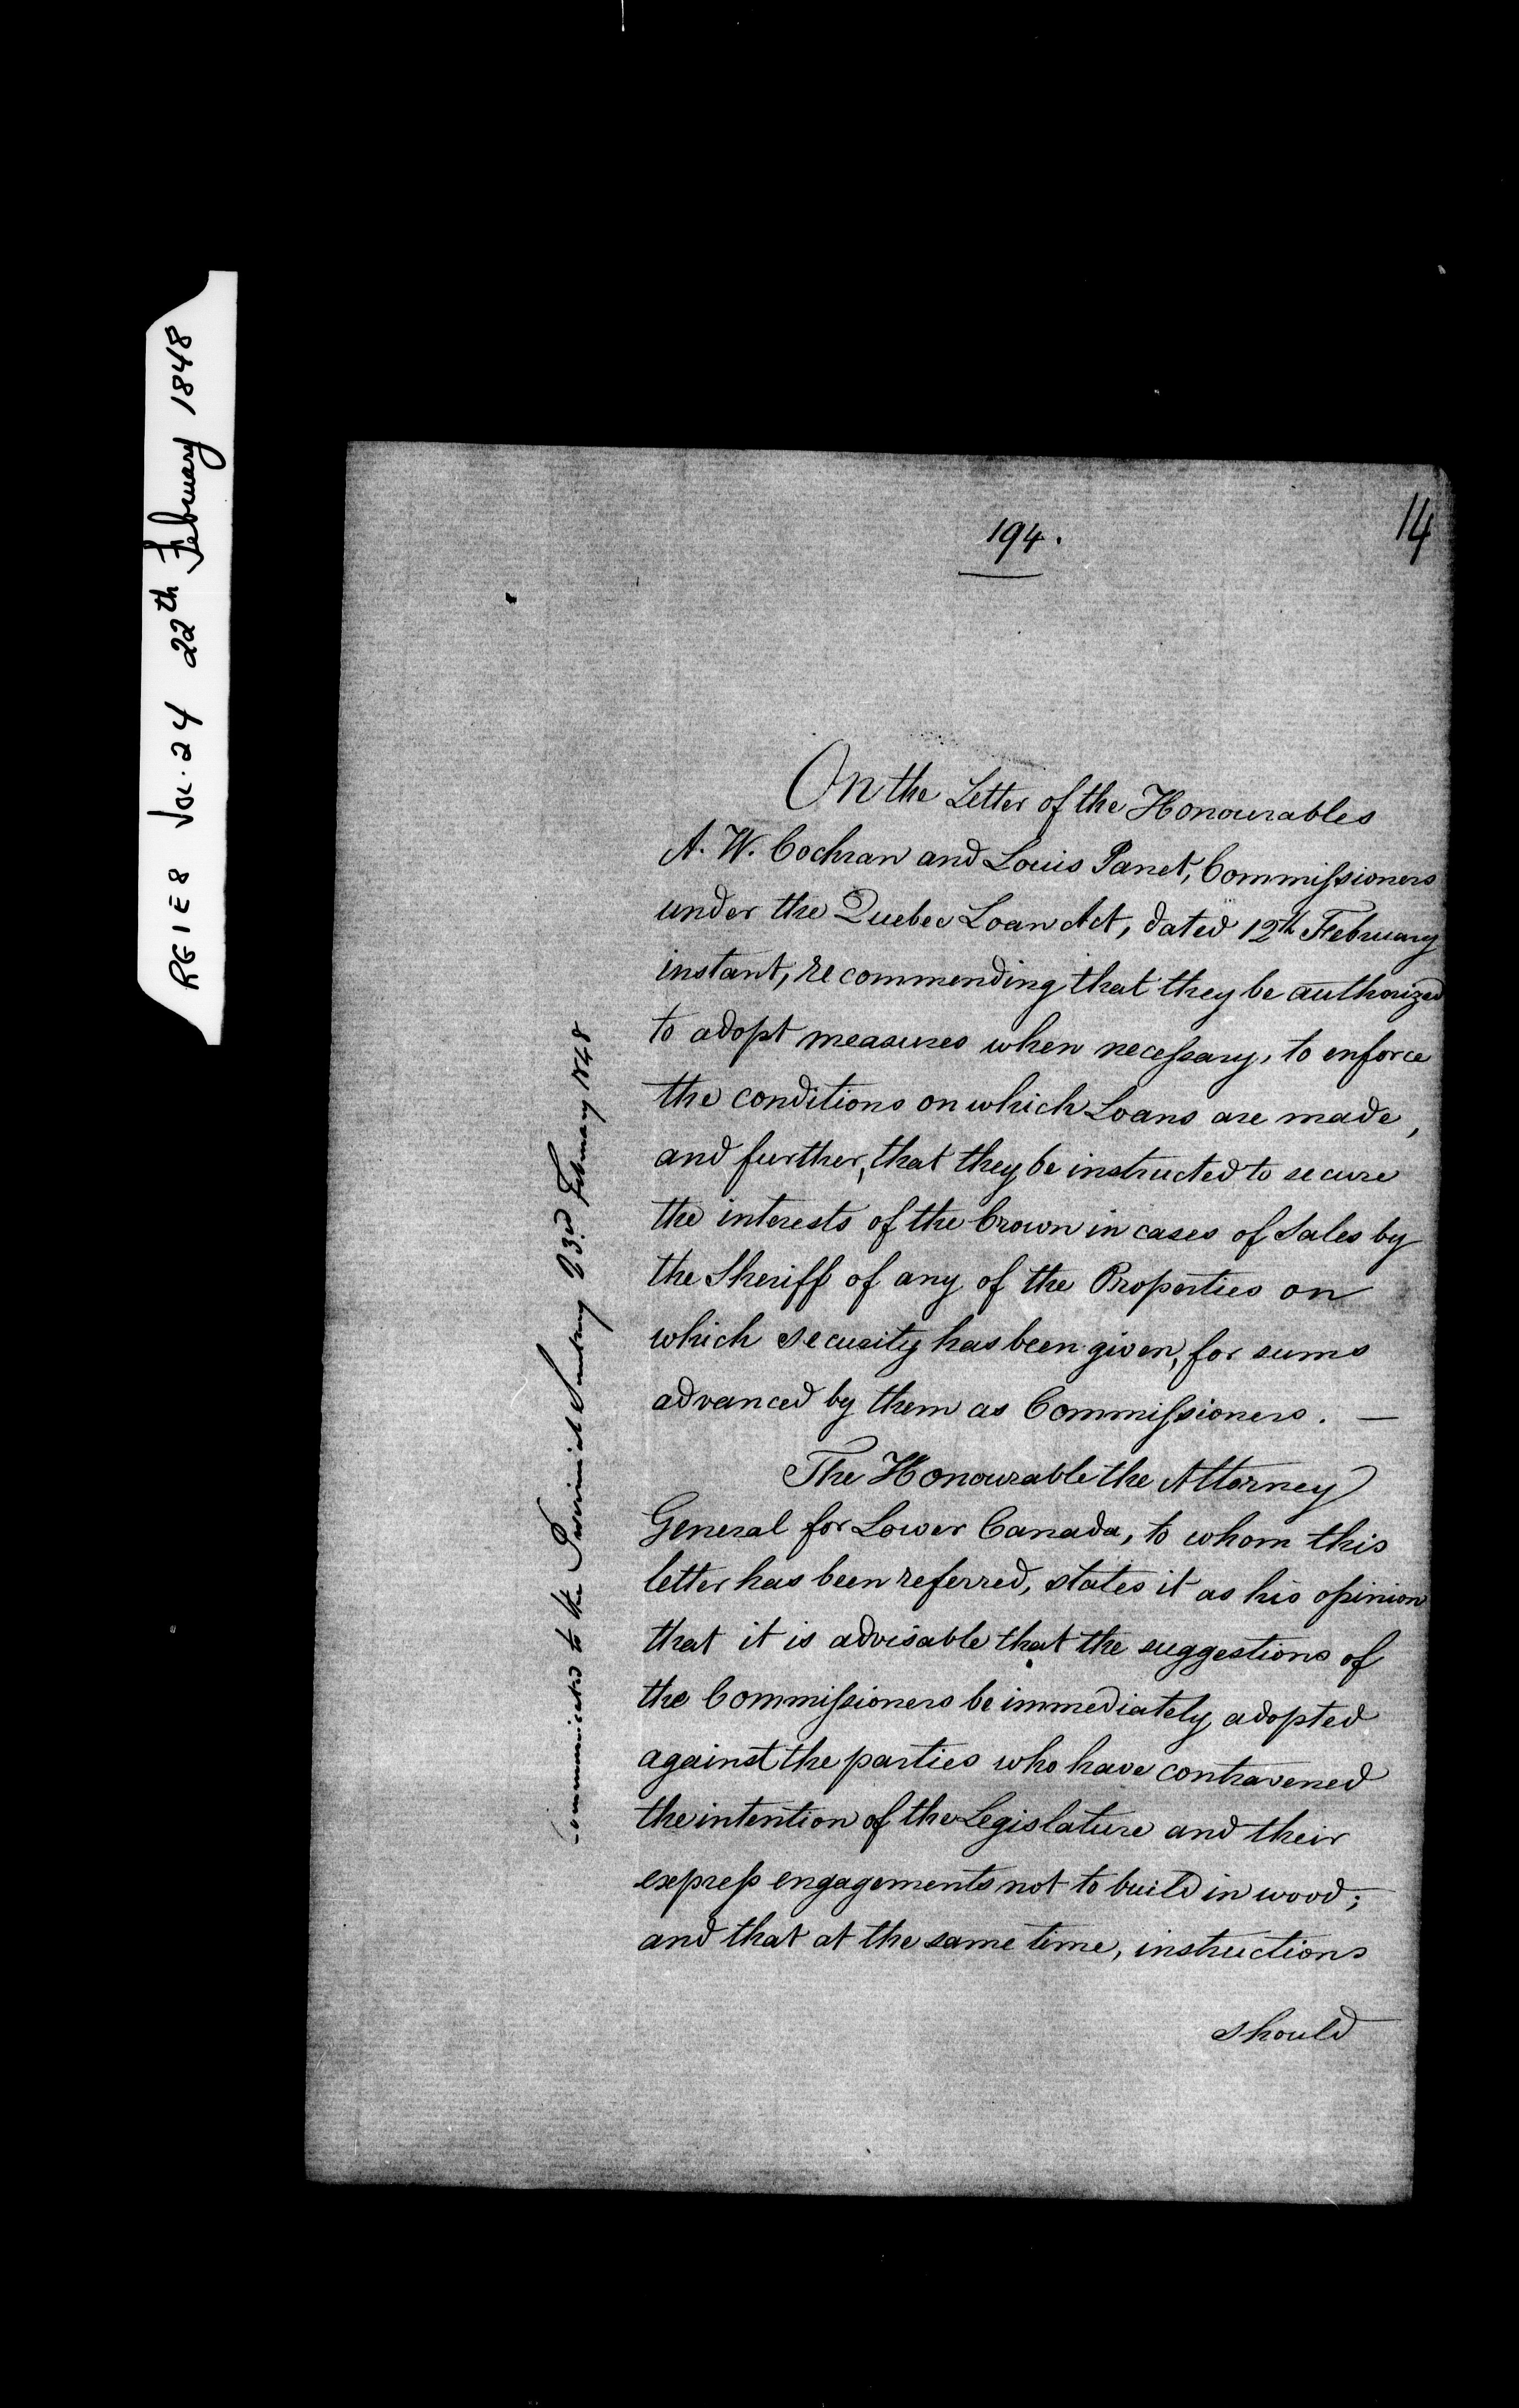 RG1E8 Vol. 24 22th February 1848
194.
14
On the Letter of the Honourables
A. W. Cochran and Louis Panet, Commissioners
under the Quebec Loan Act, dated 12th February
instant, recommending that they be authorized
to adopt measures when necessary, to enforce
the conditions on which Loans are made,
and further, that they be instructed to secure
the interests of the Crown in cases of Sales by
the Sheriff of any of the Properties on
which security has been given, for sums
advanced by them as Commissioners. —
The Honourable the Attorney
General for Lower Canada, to whom this
letter has been referred, states it as his opinion
that it is advisable that the suggestions of
the Commissioners be immediately adopted
against the parties who have contravened
the intention of the Legislature and their
express engagements not to build in wood;
and that at the same time, instructions
should
Communicated to the Provincial Secretary 23rd February 1848